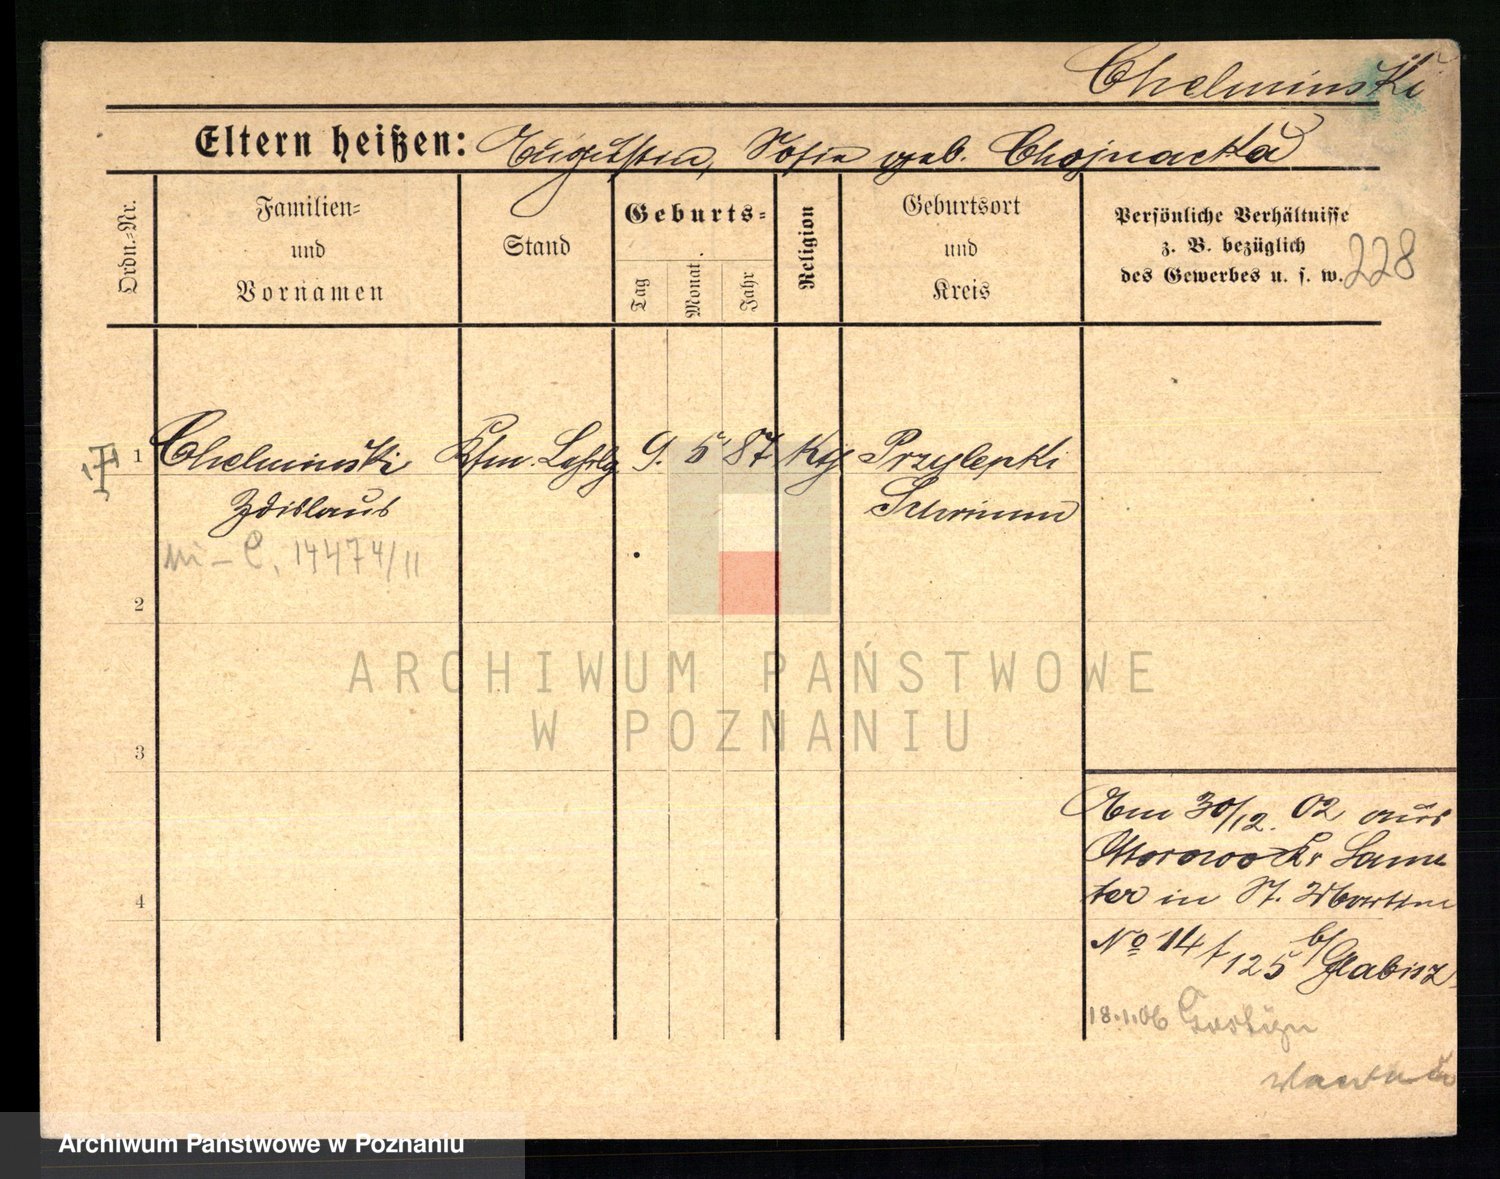 Chelminski
Eltern heißen: Augustin, Sofia geb. Chojnacka
Ordn.-Nr.
Familien-
und
Vornamen
Stand
Geburts-
Tag
Monat
Jahr
Religion
Geburtsort
und
Kreis
Persönliche Verhältnisse
z. B. bezüglich
des Gewerbes u. s. w.
228
1 Chelminski Kfm. Lehrlg. 9. 5 87 kth Przylepki
Zdislaus Schrimm
C. 14474/11
2
3
4
Am 30/12. 02 aus
Otorowo Kr Samter
in St. Martin
No 14 / 125 b/ Glabisz
18.1.06 Gostyn
ARCHIWUM PAŃSTWOWE
W POZNANIU
Archiwum Państwowe w Poznaniu